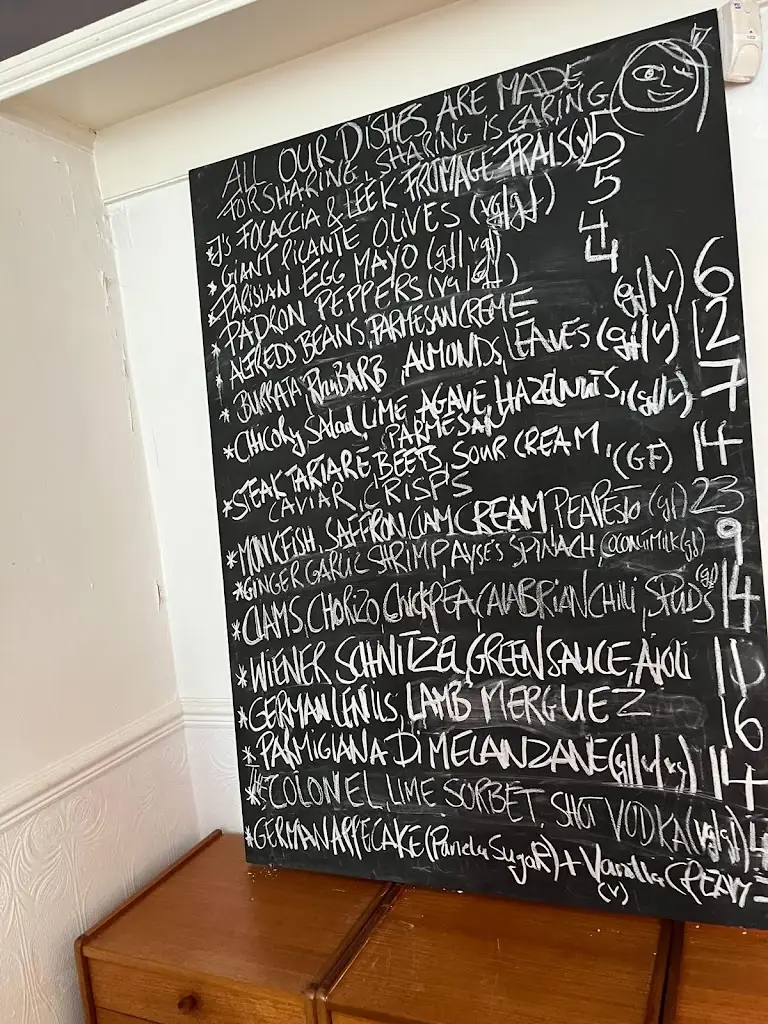 ALL OUR DISHES ARE MADE
FOR SHARING, SHARING IS CARING
FOCACCIA & LEEK FROMAGE FRAIS (v) 5
* GIANT PICANTE OLIVES (vg/gf) 5
* PARISIAN EGG MAYO (gf/ 4
* PADRON PEPPERS (vg/gf) 4
* ALFREDO BEANS, PARMESAN CREME (gf/v) 6
* BURRATA RhuBARB, ALMONDS, LEAVES (gf/v) 12
* CHICORY SALAD LIME AGAVE HAZELNUTS, (gf/v) 7
PARMESAN
* STEAK TARTARE BEETS, SOUR CREAM, (GF) 14
CAVIAR, CRISPS
* MONKFISH, SAFFRON, CLAM CREAM, PEA PESTO (gf) 23
* GINGER GARLIC SHRIMP, AYSE'S SPINACH, COCONUT MILK (gf) 9
* CLAMS, CHORIZO, CHICKPEA, CALABRIAN CHILI, SPUDS (gf) 14
* WIENER SCHNITZEL, GREEN SAUCE, AIOLI
* GERMAN LENTILS, LAMB MERGUEZ 16
* PARMIGIANA DI MELANZANE 14
* THE COLONEL, LIME SORBET, SHOT VODKA (vg/gf)
* GERMAN APPLE CAKE (Panela Sugar) + Vanilla
(v)